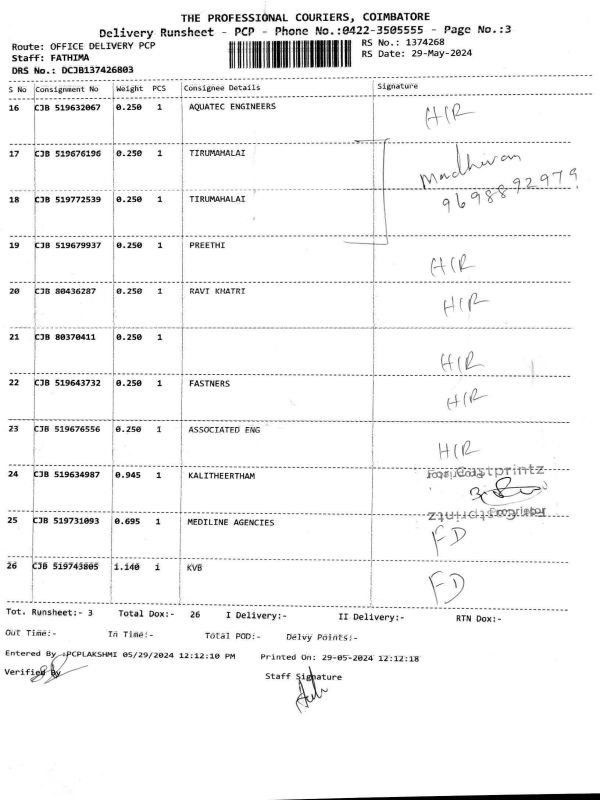 THE PROFESSIONAL COURIERS, COIMBATORE
Delivery Runsheet - PCP - Phone No.:0422-3505555 - Page No.:3
Route: OFFICE DELIVERY PCP RS No.: 1374268
Staff: FATHIMA RS Date: 29-May-2024
DRS No.: DCJB137426803
S No Consignment No Weight PCS Consignee Details Signature
16 CJB 519632067 0.250 1 AQUATEC ENGINEERS H/R
17 CJB 519676196 0.250 1 TIRUMAHALAI Madhivan
18 CJB 519772539 0.250 1 TIRUMAHALAI 9698892979
19 CJB 519679937 0.250 1 PREETHI H/R
20 CJB 80436287 0.250 1 RAVI KHATRI H/R
21 CJB 80370411 0.250 1 H/R
22 CJB 519643732 0.250 1 FASTNERS H/R
23 CJB 519676556 0.250 1 ASSOCIATED ENG H/R
24 CJB 519634987 0.945 1 KALITHEERTHAM
25 CJB 519731093 0.695 1 MEDILINE AGENCIES FD
26 CJB 519743805 1.140 1 KVB FD
Tot. Runsheet:- 3 Total Dox:- 26 I Delivery:- II Delivery:- RTN Dox:-
Out Time:- In Time:- Total POD:- Delvy Points:-
Entered By :PCPLAKSHMI 05/29/2024 12:12:10 PM Printed On: 29-05-2024 12:12:18
Verified By
Staff Signature